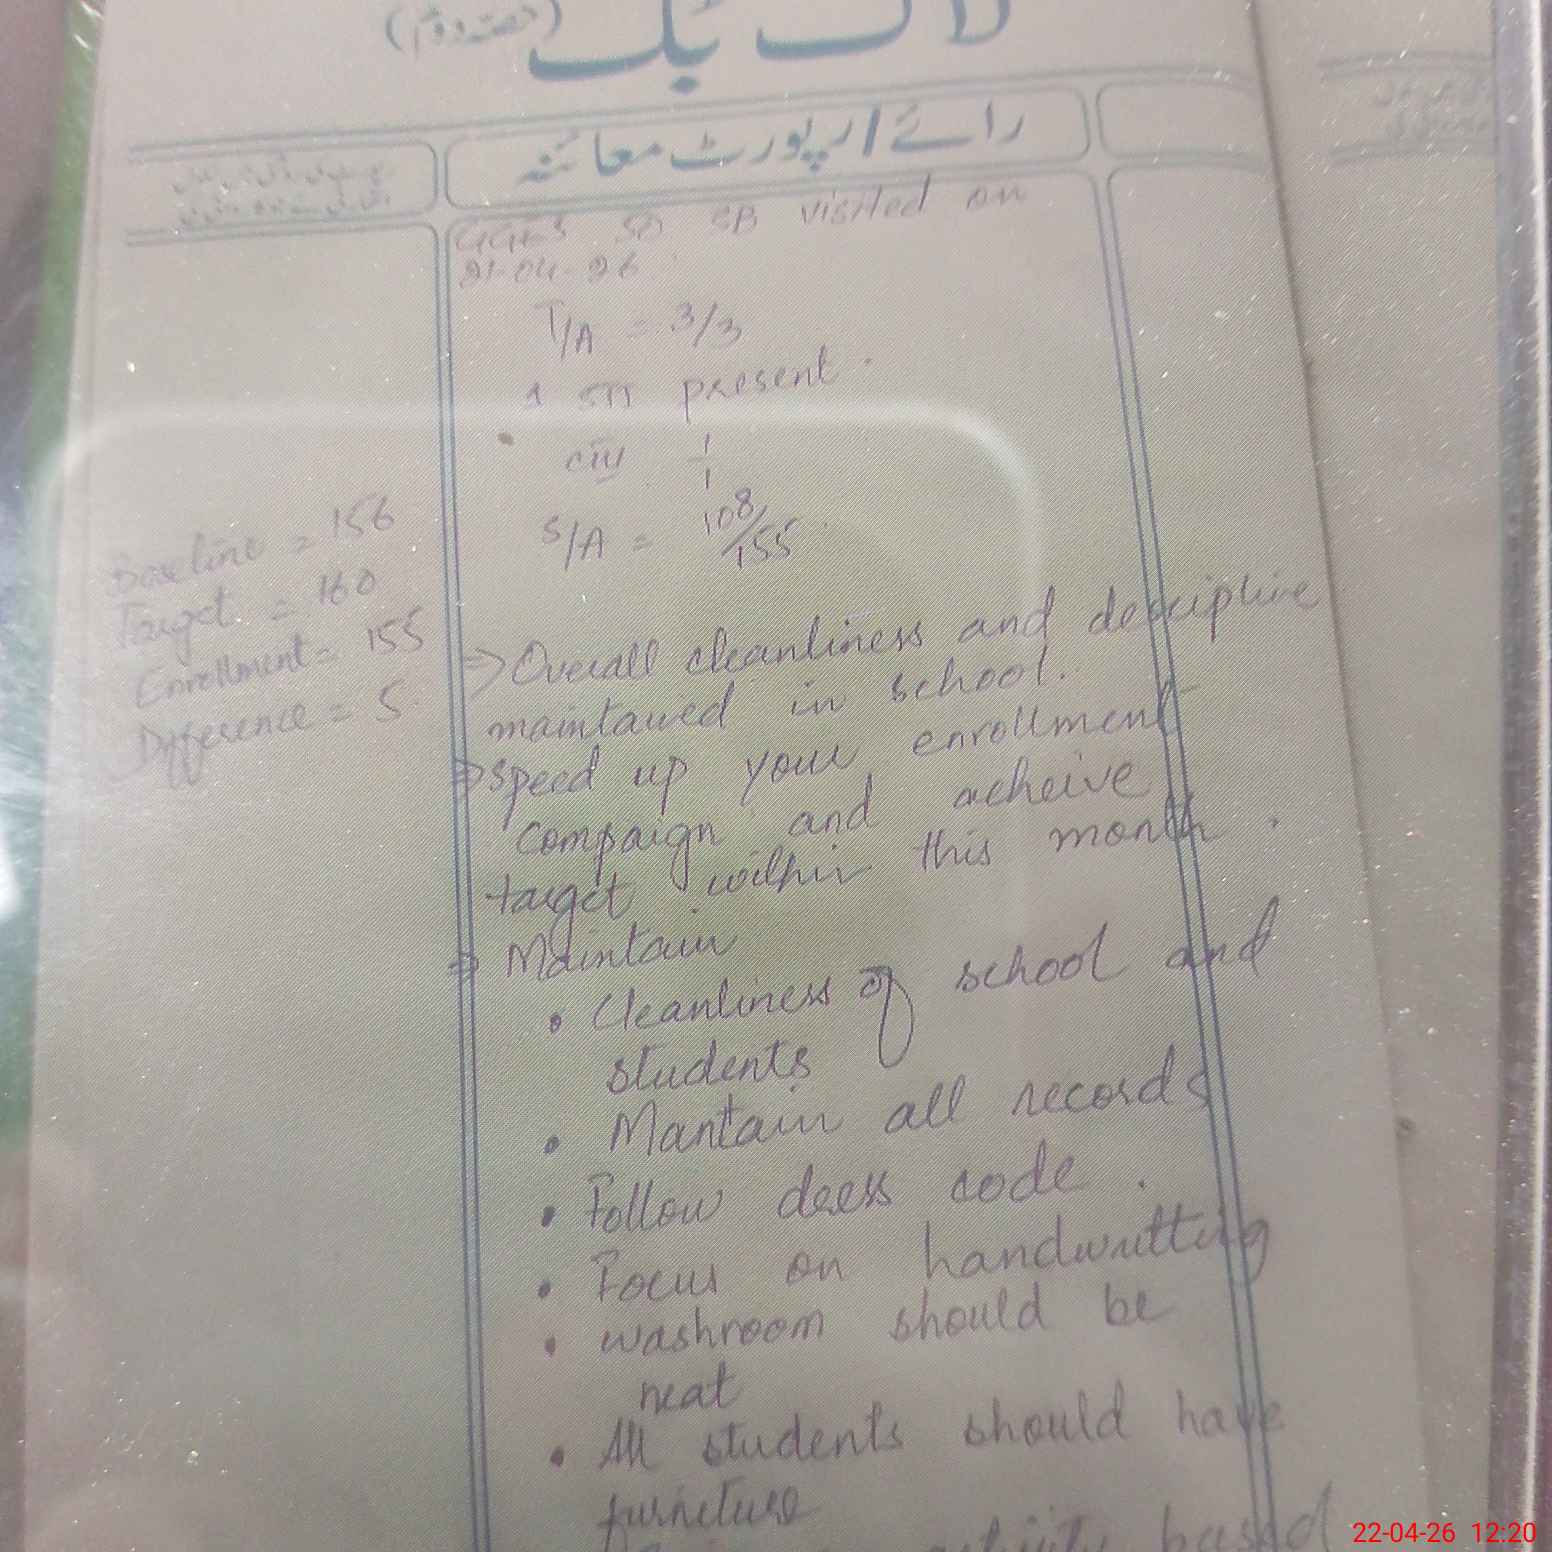 لاگ بک (حصہ دوم)
رائے / رپورٹ معائنہ
GGES SB visited on
21-04-26
T/A = 3/3
1 STI present.
CIV 1/1
S/A = 108/155.
Baseline = 156
Target = 160
Enrollment = 155
Difference = 5.
⇒ Overall cleanliness and descipline
maintained in school.
⇒ speed up your enrollment
compaign and acheive
target within this month.
⇒ Maintain
• Cleanliness of school and
students
• Mantain all records
• Follow dress code.
• Focus on handwritting
• washroom should be
neat
• All students should have
furniture
activity based
22-04-26 12:20